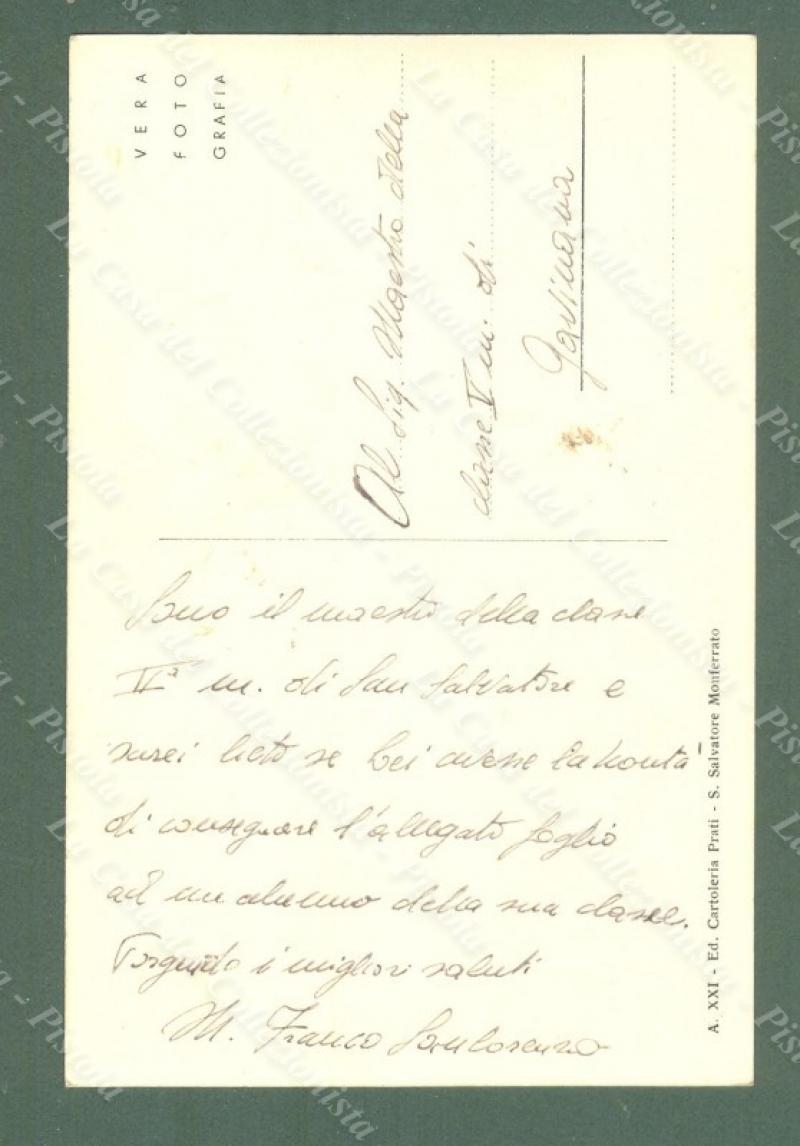 VERA
FOTO
GRAFIA
Al Sig. Maestro della
classe V m. di
Gavinana
Sono il maestro della classe
Vª m. di San Salvatore e
sarei lieto se Lei avesse la bontà
di consegnare l'allegato foglio
ad un alunno della sua classe.
Porgendo i migliori saluti
M. Franco Sanlorenzo
A. XXI - Ed. Cartoleria Prati - S. Salvatore Monferrato
La Casa del Collezionista - Pistoia